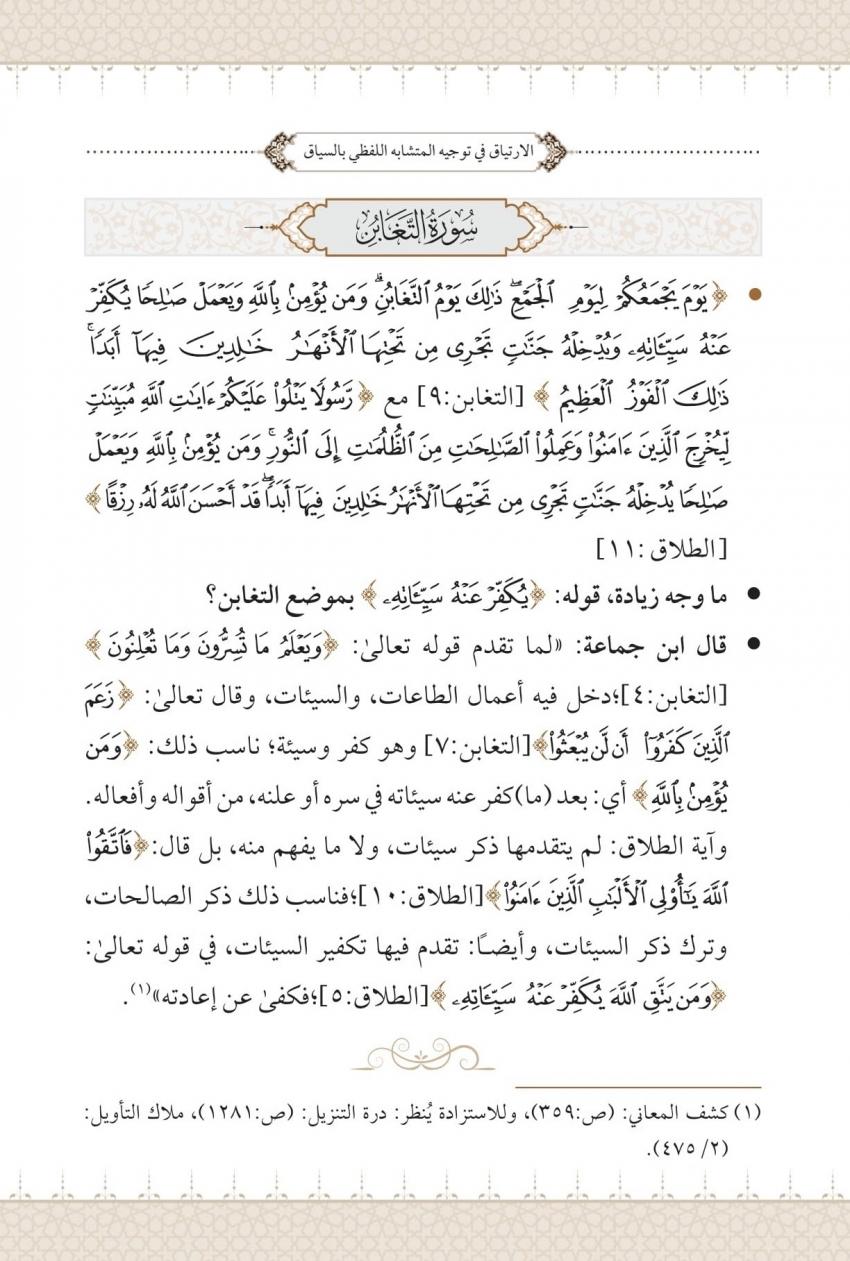 الارتياق في توجيه المتشابه اللفظي بالسياق
سُورَةُ التَّغَابُنِ
• ﴿يَوْمَ يَجْمَعُكُمْ لِيَوْمِ الْجَمْعِ ۖ ذَٰلِكَ يَوْمُ التَّغَابُنِ ۗ وَمَن يُؤْمِنۢ بِاللَّهِ وَيَعْمَلْ صَالِحًا يُكَفِّرْ
عَنْهُ سَيِّـَٔاتِهِۦ وَيُدْخِلْهُ جَنَّاتٍ تَجْرِي مِن تَحْتِهَا الْأَنْهَارُ خَالِدِينَ فِيهَآ أَبَدًا ۚ
ذَٰلِكَ الْفَوْزُ الْعَظِيمُ﴾ [التغابن:٩] مع ﴿رَّسُولًا يَتْلُوا۟ عَلَيْكُمْ ءَايَاتِ اللَّهِ مُبَيِّنَاتٍ
لِّيُخْرِجَ الَّذِينَ ءَامَنُوا۟ وَعَمِلُوا۟ الصَّالِحَاتِ مِنَ الظُّلُمَاتِ إِلَى النُّورِ ۚ وَمَن يُؤْمِنۢ بِاللَّهِ وَيَعْمَلْ
صَالِحًا يُدْخِلْهُ جَنَّاتٍ تَجْرِي مِن تَحْتِهَا الْأَنْهَارُ خَالِدِينَ فِيهَآ أَبَدًا ۖ قَدْ أَحْسَنَ اللَّهُ لَهُۥ رِزْقًا﴾
[الطلاق:١١]
• ما وجه زيادة، قوله: ﴿يُكَفِّرْ عَنْهُ سَيِّـَٔاتِهِۦ﴾ بموضع التغابن؟
• قال ابن جماعة: «لما تقدم قوله تعالىٰ: ﴿وَيَعْلَمُ مَا تُسِرُّونَ وَمَا تُعْلِنُونَ﴾
[التغابن:٤]؛دخل فيه أعمال الطاعات، والسيئات، وقال تعالىٰ: ﴿زَعَمَ
الَّذِينَ كَفَرُوٓا۟ أَن لَّن يُبْعَثُوا۟﴾[التغابن:٧] وهو كفر وسيئة؛ ناسب ذلك: ﴿وَمَن
يُؤْمِنۢ بِاللَّهِ﴾ أي: بعد (ما)كفر عنه سيئاته في سره أو علنه، من أقواله وأفعاله.
وآية الطلاق: لم يتقدمها ذكر سيئات، ولا ما يفهم منه، بل قال:﴿فَاتَّقُوا۟
اللَّهَ يَـٰٓأُو۟لِي الْأَلْبَابِ الَّذِينَ ءَامَنُوا۟﴾[الطلاق:١٠]؛فناسب ذلك ذكر الصالحات،
وترك ذكر السيئات، وأيضًا: تقدم فيها تكفير السيئات، في قوله تعالىٰ:
﴿وَمَن يَتَّقِ اللَّهَ يُكَفِّرْ عَنْهُ سَيِّـَٔاتِهِۦ﴾[الطلاق:٥]؛فكفىٰ عن إعادته»(١).
(١) كشف المعاني: (ص:٣٥٩)، وللاستزادة يُنظر: درة التنزيل: (ص:١٢٨١)، ملاك التأويل:
(٢/ ٤٧٥).